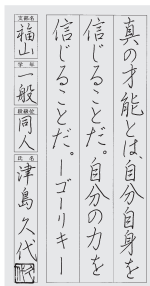 真の才能とは、自分自身を
信じることだ。自分の力を
信じることだ。ーゴーリキー
支部名
福山
学年
一般
段級位
同人
氏名
津島久代